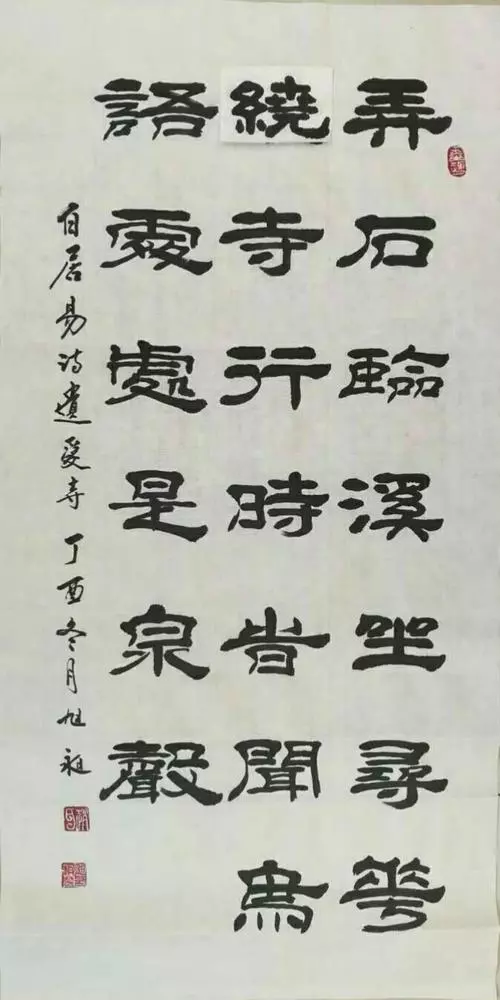 弄石臨溪坐尋華
繞寺行時旹聞鳥
語處處是泉聲
白居易诗遺爱寺 丁酉冬月旭